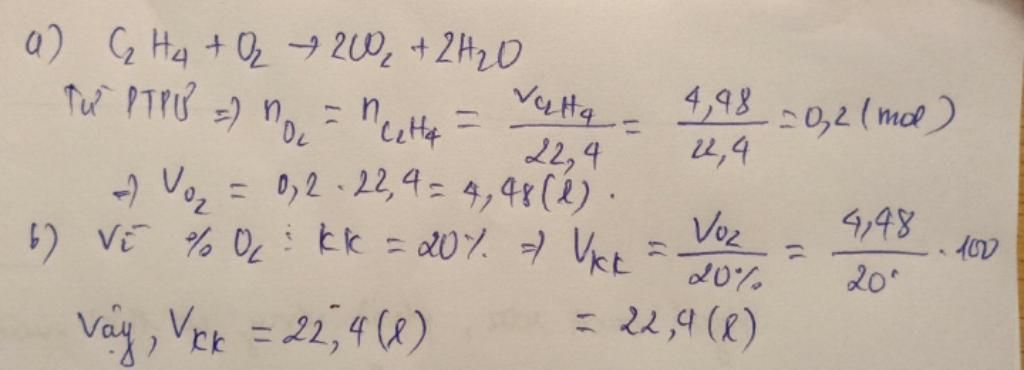 a) C₂H₄ + O₂ → 2CO₂ + 2H₂O
Từ PTPƯ ⇒ n_O₂ = n_C₂H₄ = V_C₂H₄ / 22,4 = 4,48 / 22,4 = 0,2 (mol)
⇒ V_O₂ = 0,2 . 22,4 = 4,48 (l).
b) Vì % O₂ : KK = 20% ⇒ V_KK = V_O₂ / 20% = 4,48 / 20 . 100
= 22,4 (l)
Vậy, V_KK = 22,4 (l)